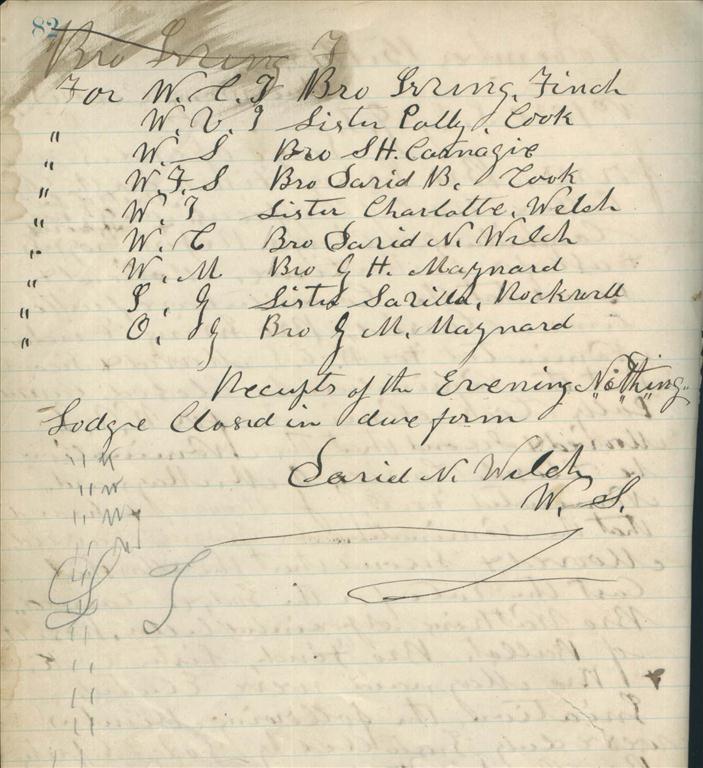 82
Bro Irving F
For W. C. T Bro Irving. Finch
" W. V. T Sister Polly. Cook
" W. S Bro S H. Carnagie
" W. F. S Bro David B. Cook
" W. T Sister Charlotte. Welch
" W. C Bro David N. Welch
" W. M Bro G H. Maynard
" I. G Sister Sarilla, Rockwell
" O. G Bro G M. Maynard
Receipts of the Evening Nothing
Lodge Closed in due form
David N. Welch
W. S.